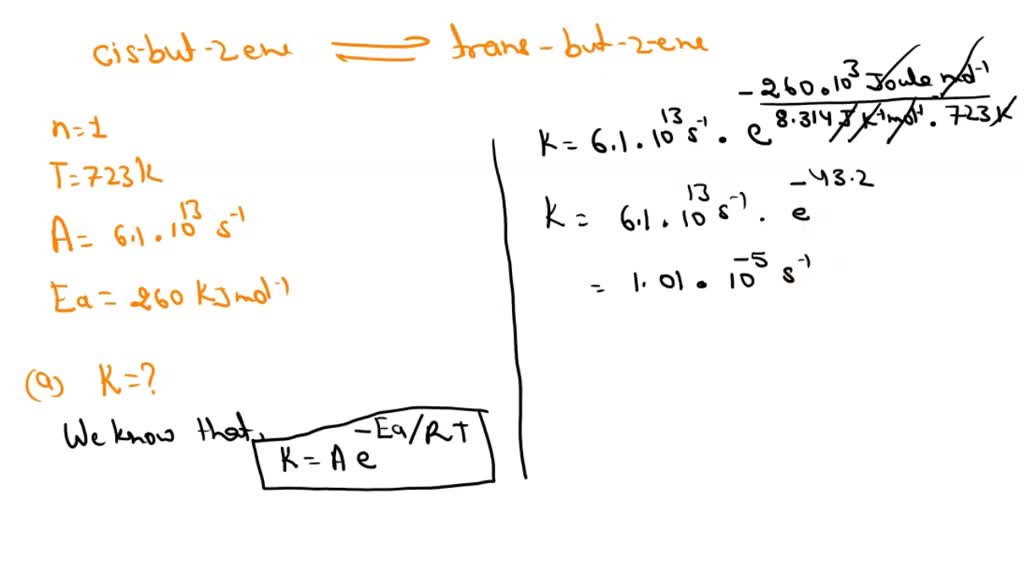 cis-but-2ene ⇌ trans-but-2-ene
n=1
T=723k
A= 6.1.10¹³ s⁻¹
Ea= 260 KJmol⁻¹
(a) K=?
We know that,
K= A e^-Ea/RT
K= 6.1.10¹³ s⁻¹ . e^(-260.10³ Joule mol⁻¹ / 8.314 J K⁻¹mol⁻¹ . 723K)
K= 6.1.10¹³ s⁻¹ . e^-43.2
= 1.01 . 10⁻⁵ s⁻¹